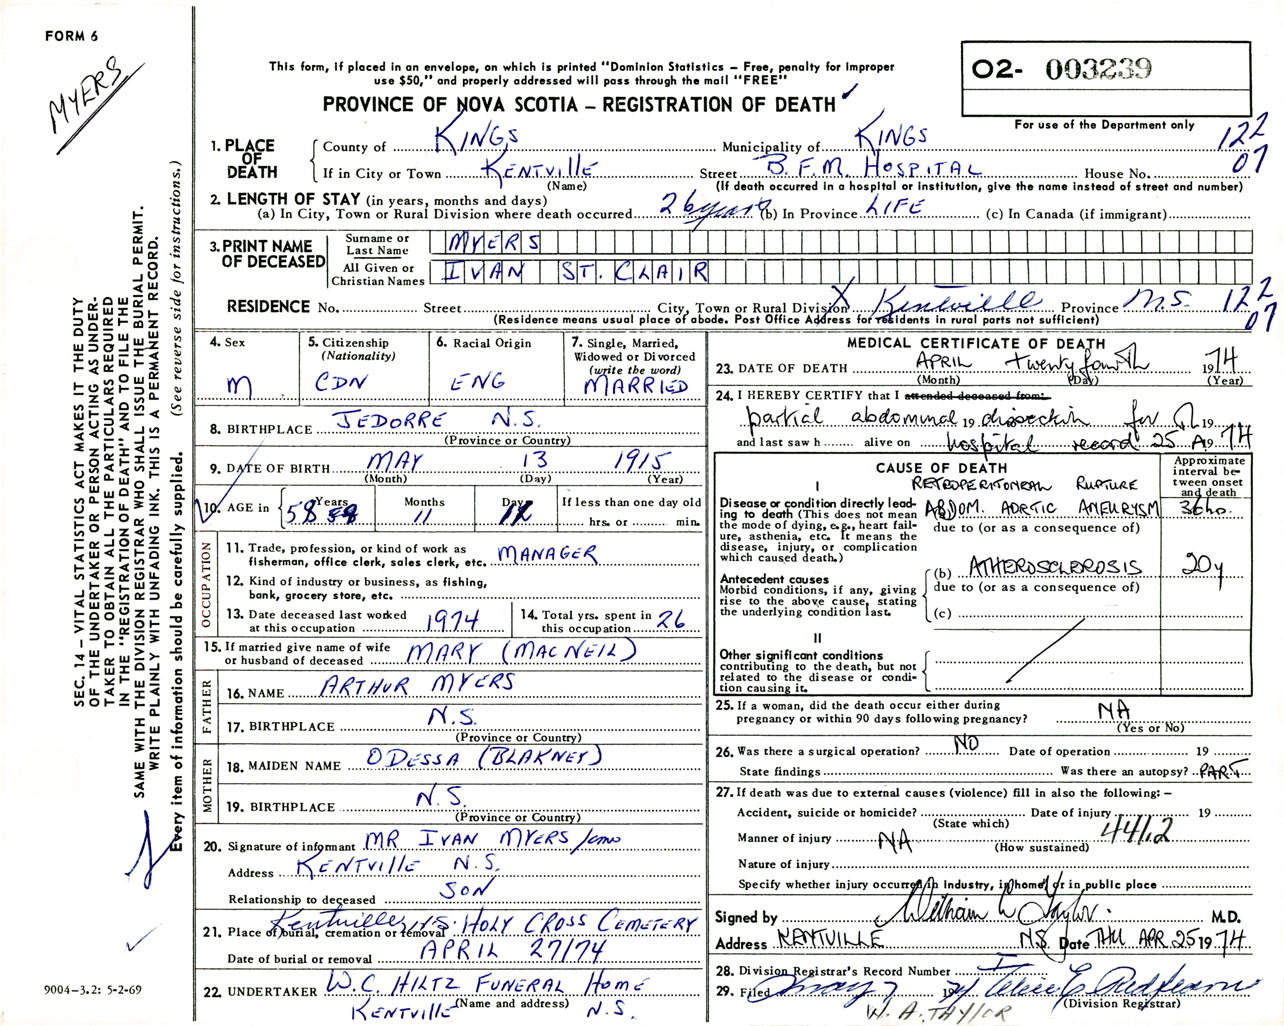 FORM 6
MYERS
This form, if placed in an envelope, on which is printed "Dominion Statistics – Free, penalty for improper
use $50," and properly addressed will pass through the mail "FREE"
PROVINCE OF NOVA SCOTIA – REGISTRATION OF DEATH
O2- 003239
For use of the Department only
1. PLACE OF DEATH
County of KINGS Municipality of KINGS 122
If in City or Town KENTVILLE Street B.F.M. HOSPITAL House No. 07
(Name) (If death occurred in a hospital or institution, give the name instead of street and number)
2. LENGTH OF STAY (in years, months and days)
(a) In City, Town or Rural Division where death occurred 26 years (b) In Province LIFE (c) In Canada (if immigrant)
3. PRINT NAME OF DECEASED
Surname or Last Name MYERS
All Given or Christian Names IVAN ST. CLAIR
RESIDENCE No. Street City, Town or Rural Division X Kentville Province N.S. 122
(Residence means usual place of abode. Post Office Address for residents in rural parts not sufficient) 07
4. Sex
M
5. Citizenship
(Nationality)
CDN
6. Racial Origin
ENG
7. Single, Married,
Widowed or Divorced
(write the word)
MARRIED
8. BIRTHPLACE JEDORRE N.S.
(Province or Country)
9. DATE OF BIRTH MAY 13 1915
(Month) (Day) (Year)
10. AGE in Years Months Days If less than one day old
58 11 hrs. or min.
OCCUPATION
11. Trade, profession, or kind of work as
fisherman, office clerk, sales clerk, etc. MANAGER
12. Kind of industry or business, as fishing,
bank, grocery store, etc.
13. Date deceased last worked
at this occupation 1974
14. Total yrs. spent in
this occupation 26
15. If married give name of wife
or husband of deceased MARY (MACNEIL)
FATHER
16. NAME ARTHUR MYERS
17. BIRTHPLACE N.S.
(Province or Country)
MOTHER
18. MAIDEN NAME ODESSA (BLAKNEY)
19. BIRTHPLACE N.S.
(Province or Country)
20. Signature of informant MR IVAN MYERS
Address KENTVILLE N.S.
Relationship to deceased SON
21. Place of burial, cremation or removal Kentville N.S. HOLY CROSS CEMETERY
Date of burial or removal APRIL 27/74
22. UNDERTAKER W.C. HILTZ FUNERAL HOME
(Name and address)
KENTVILLE N.S.
MEDICAL CERTIFICATE OF DEATH
23. DATE OF DEATH APRIL twenty fourth 1974
(Month) (Day) (Year)
24. I HEREBY CERTIFY that I attended deceased from:
partial abdominal 19 dissection for 19
and last saw h alive on hospital record 25 A 1974
Approximate interval between onset and death
CAUSE OF DEATH
I
RETROPERITONEAL RUPTURE
Disease or condition directly leading to death (This does not mean the mode of dying, e.g., heart failure, asthenia, etc. It means the disease, injury, or complication which caused death.)
ABDOM. AORTIC ANEURYSM 36ho.
due to (or as a consequence of)
Antecedent causes
Morbid conditions, if any, giving rise to the above cause, stating the underlying condition last.
(b) ATHEROSCLEROSIS 20y
due to (or as a consequence of)
(c)
II
Other significant conditions
contributing to the death, but not related to the disease or condition causing it.
25. If a woman, did the death occur either during
pregnancy or within 90 days following pregnancy? NA
(Yes or No)
26. Was there a surgical operation? NO Date of operation 19
State findings Was there an autopsy? PART
27. If death was due to external causes (violence) fill in also the following: –
Accident, suicide or homicide? Date of injury 19
(State which)
4412
Manner of injury NA
(How sustained)
Nature of injury
Specify whether injury occurred in Industry, in home, or in public place
Signed by William A Taylor M.D.
Address KENTVILLE NS Date THU APR 25 1974
28. Division Registrar's Record Number
29. Filed May 7 1974
(Division Registrar)
W. A. TAYLOR
SEC. 14 – VITAL STATISTICS ACT MAKES IT THE DUTY
OF THE UNDERTAKER OR PERSON ACTING AS UNDER-
TAKER TO OBTAIN ALL THE PARTICULARS REQUIRED
IN THE "REGISTRATION OF DEATH" AND TO FILE THE
SAME WITH THE DIVISION REGISTRAR WHO SHALL ISSUE THE BURIAL PERMIT.
WRITE PLAINLY WITH UNFADING INK. THIS IS A PERMANENT RECORD.
Every item of information should be carefully supplied. (See reverse side for instructions.)
9004-3.2: 5-2-69